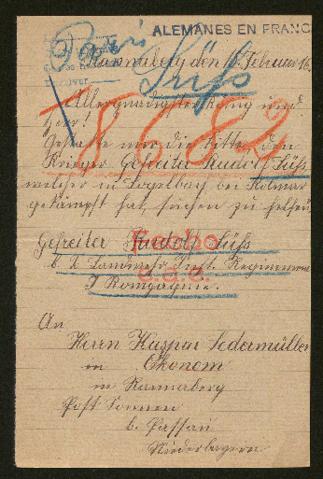 ALEMANES EN FRANC
Paris
Rannaberg den 16. Februar 16.
Süß
Allergnädigster König und
Herr!
18682
Gestatte mir die Bitte den
Krieger Gefreiter Rudolf Süß,
welcher in Logelbach bei Kolmar
gekämpft hat, suchen zu helfen
Gefreiter Rudolf Süß
Hecho
6. k. Landwehr Inft. Regiment
I Kompagnie.
An
Herrn Kaspar Ledermüller
in Ökonom
in Rannaberg
Post Sonnen
b. Passau
Niederbayern